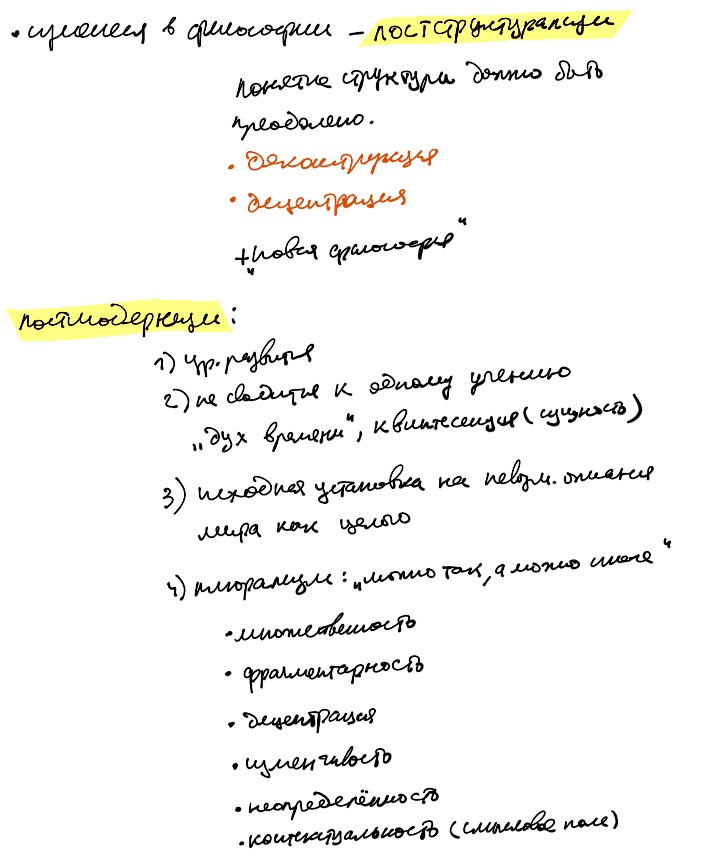 • изменен в философии – постструктурализм
понятие структуры должно быть
преодолено.
• деконструкция
• децентрация
+ „новая философия“
постмодернизм:
1) ур. развития
2) не сводится к одному учению
„дух времени“, квинтесенция (сущность)
3) исходная установка на невозм. описания
мира как целого
4) плюрализм: „можно так, а можно иначе“
• множественность
• фрагментарность
• децентрация
• изменчивость
• неопределённость
• контекстуальность (смысловое поле)